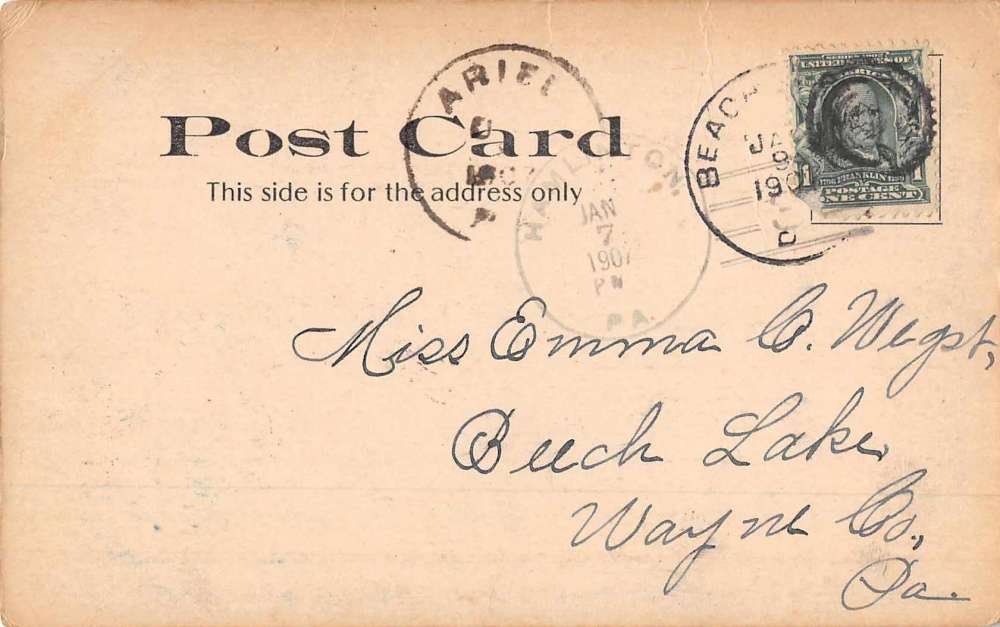 Post Card
This side is for the address only
ARIEL
HAMLINTON
JAN
7
1907
PM
PA.
BEACH
JAN
190
SERIES 1902
UNITED STATES OF
FRANKLIN
POSTAGE
ONE CENT
1
1
Miss Emma C. Wegst,
Beech Lake,
Wayne Co.,
Pa.